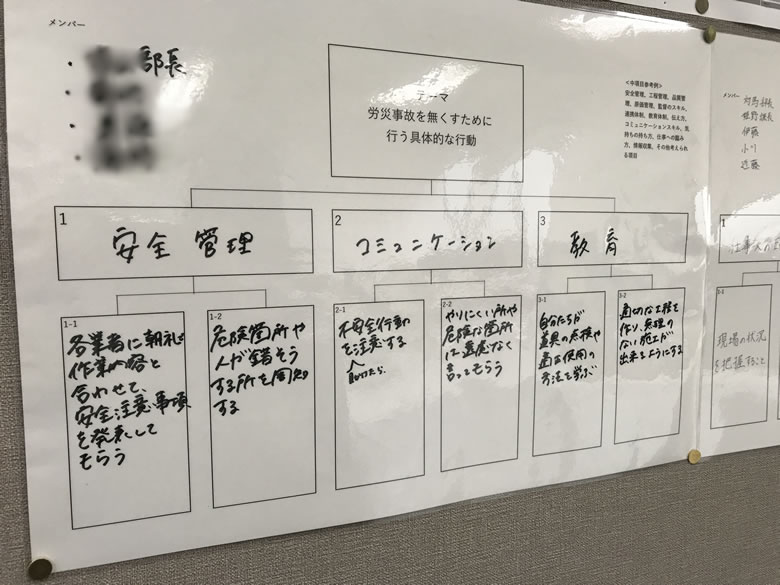 メンバー
部長
テーマ
労災事故を無くすために
行う具体的な行動
<中項目参考例>
安全管理、工程管理、品質管
理、原価管理、監督のスキル、
連携体制、教育体制、伝え方、
コミュニケーションスキル、気
持ちの持ち方、仕事への臨み
方、情報収集、その他考えられ
る項目
1
安全管理
2
コミュニケーション
3
教育
1-1
各業者に朝礼で
作業内容と
合わせて、
安全注意事項
を発表して
もらう
1-2
危険箇所や
人が錯そう
する所を周知
する
2-1
不安全行動
を注意する
2-2
やりにくい所や
危険な箇所
は遠慮なく
言ってもらう
3-1
自分たちが
道具の点検や
適正使用の
方法を学ぶ
3-2
適切な工程を
作り、無理の
ない施工が
出来るようにする
メンバー
対馬部長
姫野課長
伊藤
小川
近藤
1
1-1
現場の状況
を把握すること